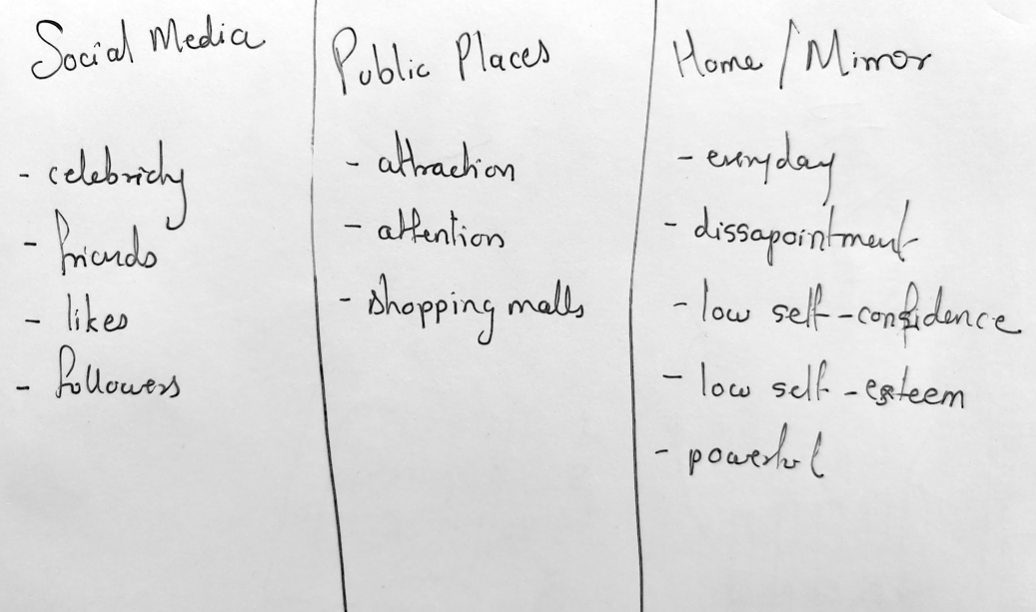 Social Media
- celebrichy
- friends
- likes
- followers
Public Places
- attraction
- attention
- shopping malls
Home / Mirror
- everyday
- dissapointment
- low self-confidence
- low self-esteem
- powerful